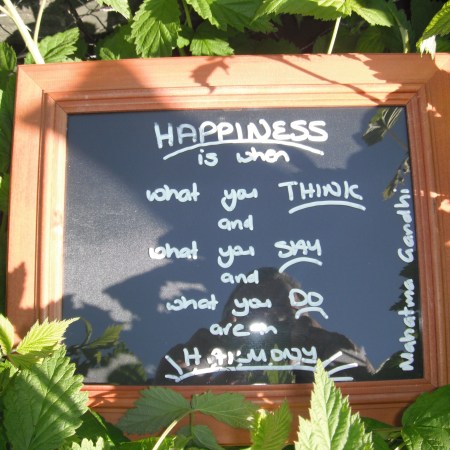 HAPPINESS
is when
what you THINK
and
what you SAY
and
what you DO
are in
HARMONY
Mahatma Gandhi